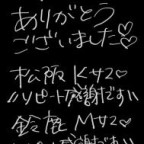 ありがとう
ございました♡
松阪 Kサマ♡
リピート感謝です
鈴鹿 Mサマ♡
感謝です